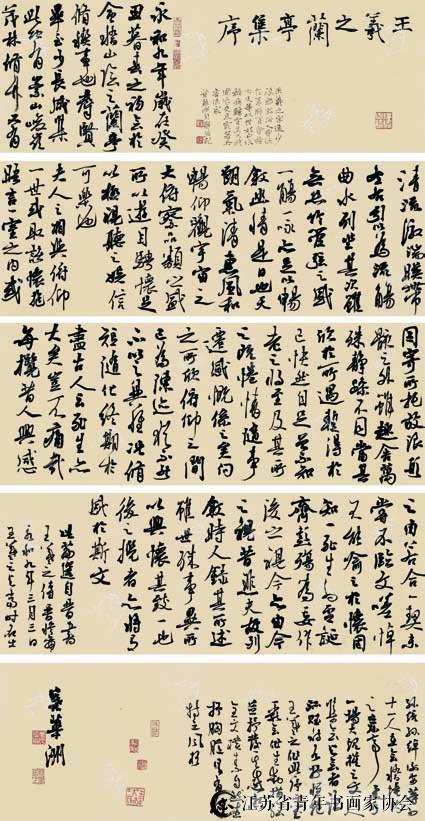 王羲之蘭亭集序
永和九年歲在癸
丑暮春之初會於
會稽山陰之蘭亭
脩禊事也群賢
畢至少長咸集
此地有崇山峻嶺
茂林脩竹又有
清流激湍映帶
左右引以為流觴
曲水列坐其次雖
無絲竹管弦之盛
一觴一詠亦足以暢
敘幽情是日也天
朗氣清惠風和
暢仰觀宇宙之
大俯察品類之盛
所以遊目騁懷足
以極視聽之娛信
可樂也
夫人之相與俯仰
一世或取諸懷抱
晤言一室之內或
因寄所托放浪形
骸之外雖趣舍萬
殊靜躁不同當其
欣於所遇暫得於
己快然自足曾不知
老之將至及其所
之既倦情隨事
遷感慨係之矣向
之所欣俯仰之間
已為陳跡猶不能
不以之興懷況脩
短隨化終期於
盡古人云死生亦
大矣豈不痛哉
每攬昔人興感
之由若合一契未
嘗不臨文嗟悼
不能喻之於懷固
知一死生為虛誕
齊彭殤為妄作
後之視今亦由今
之視昔悲夫故列
敘時人錄其所述
雖世殊事異所
以興懷其致一也
後之攬者亦將有
感於斯文
此篇選自晉書
王羲之傳晉穆帝
永和九年三月三日
王羲之與當時名士
孫統孫綽謝安等四
吳華洲
江苏省青年书画家协会